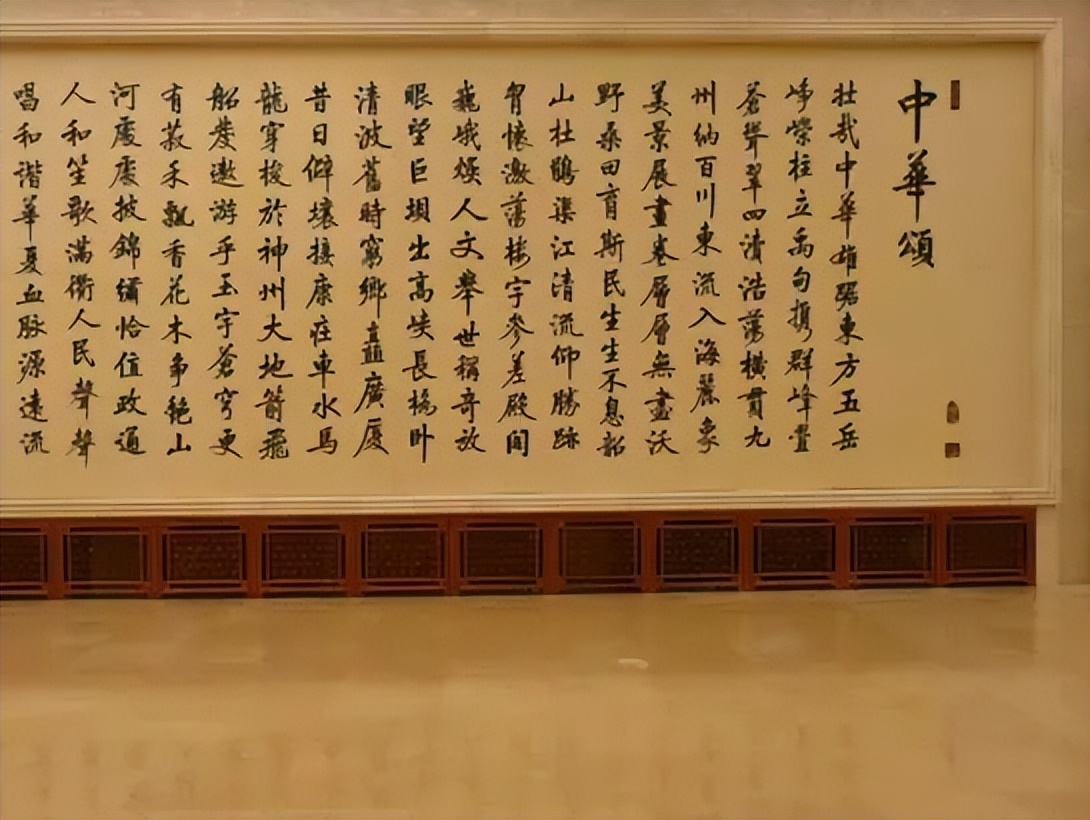 中華頌
壯哉中華雄踞東方五岳
崢嶸柱立禹甸攜群峰疊
蒼聳翠四瀆浩蕩橫貫九
州納百川東流入海麗象
美景展畫卷層層無盡沃
野桑田育斯民生生不息韶
山杜鵑渠江清流仰勝跡
胷懷激蕩樓宇參差殿閣
巍峨煥人文舉世稱奇放
眼望巨壩出高峽長橋卧
清波舊時窮鄉矗廣廈
昔日僻壤接康莊車水馬
龍穿梭於神州大地箭飛
船發遨游乎玉宇蒼穹更
有菽禾飄香花木爭艷山
河處處披錦繡恰值政通
人和笙歌滿衢人民聲聲
唱和諧華夏血脉源遠流